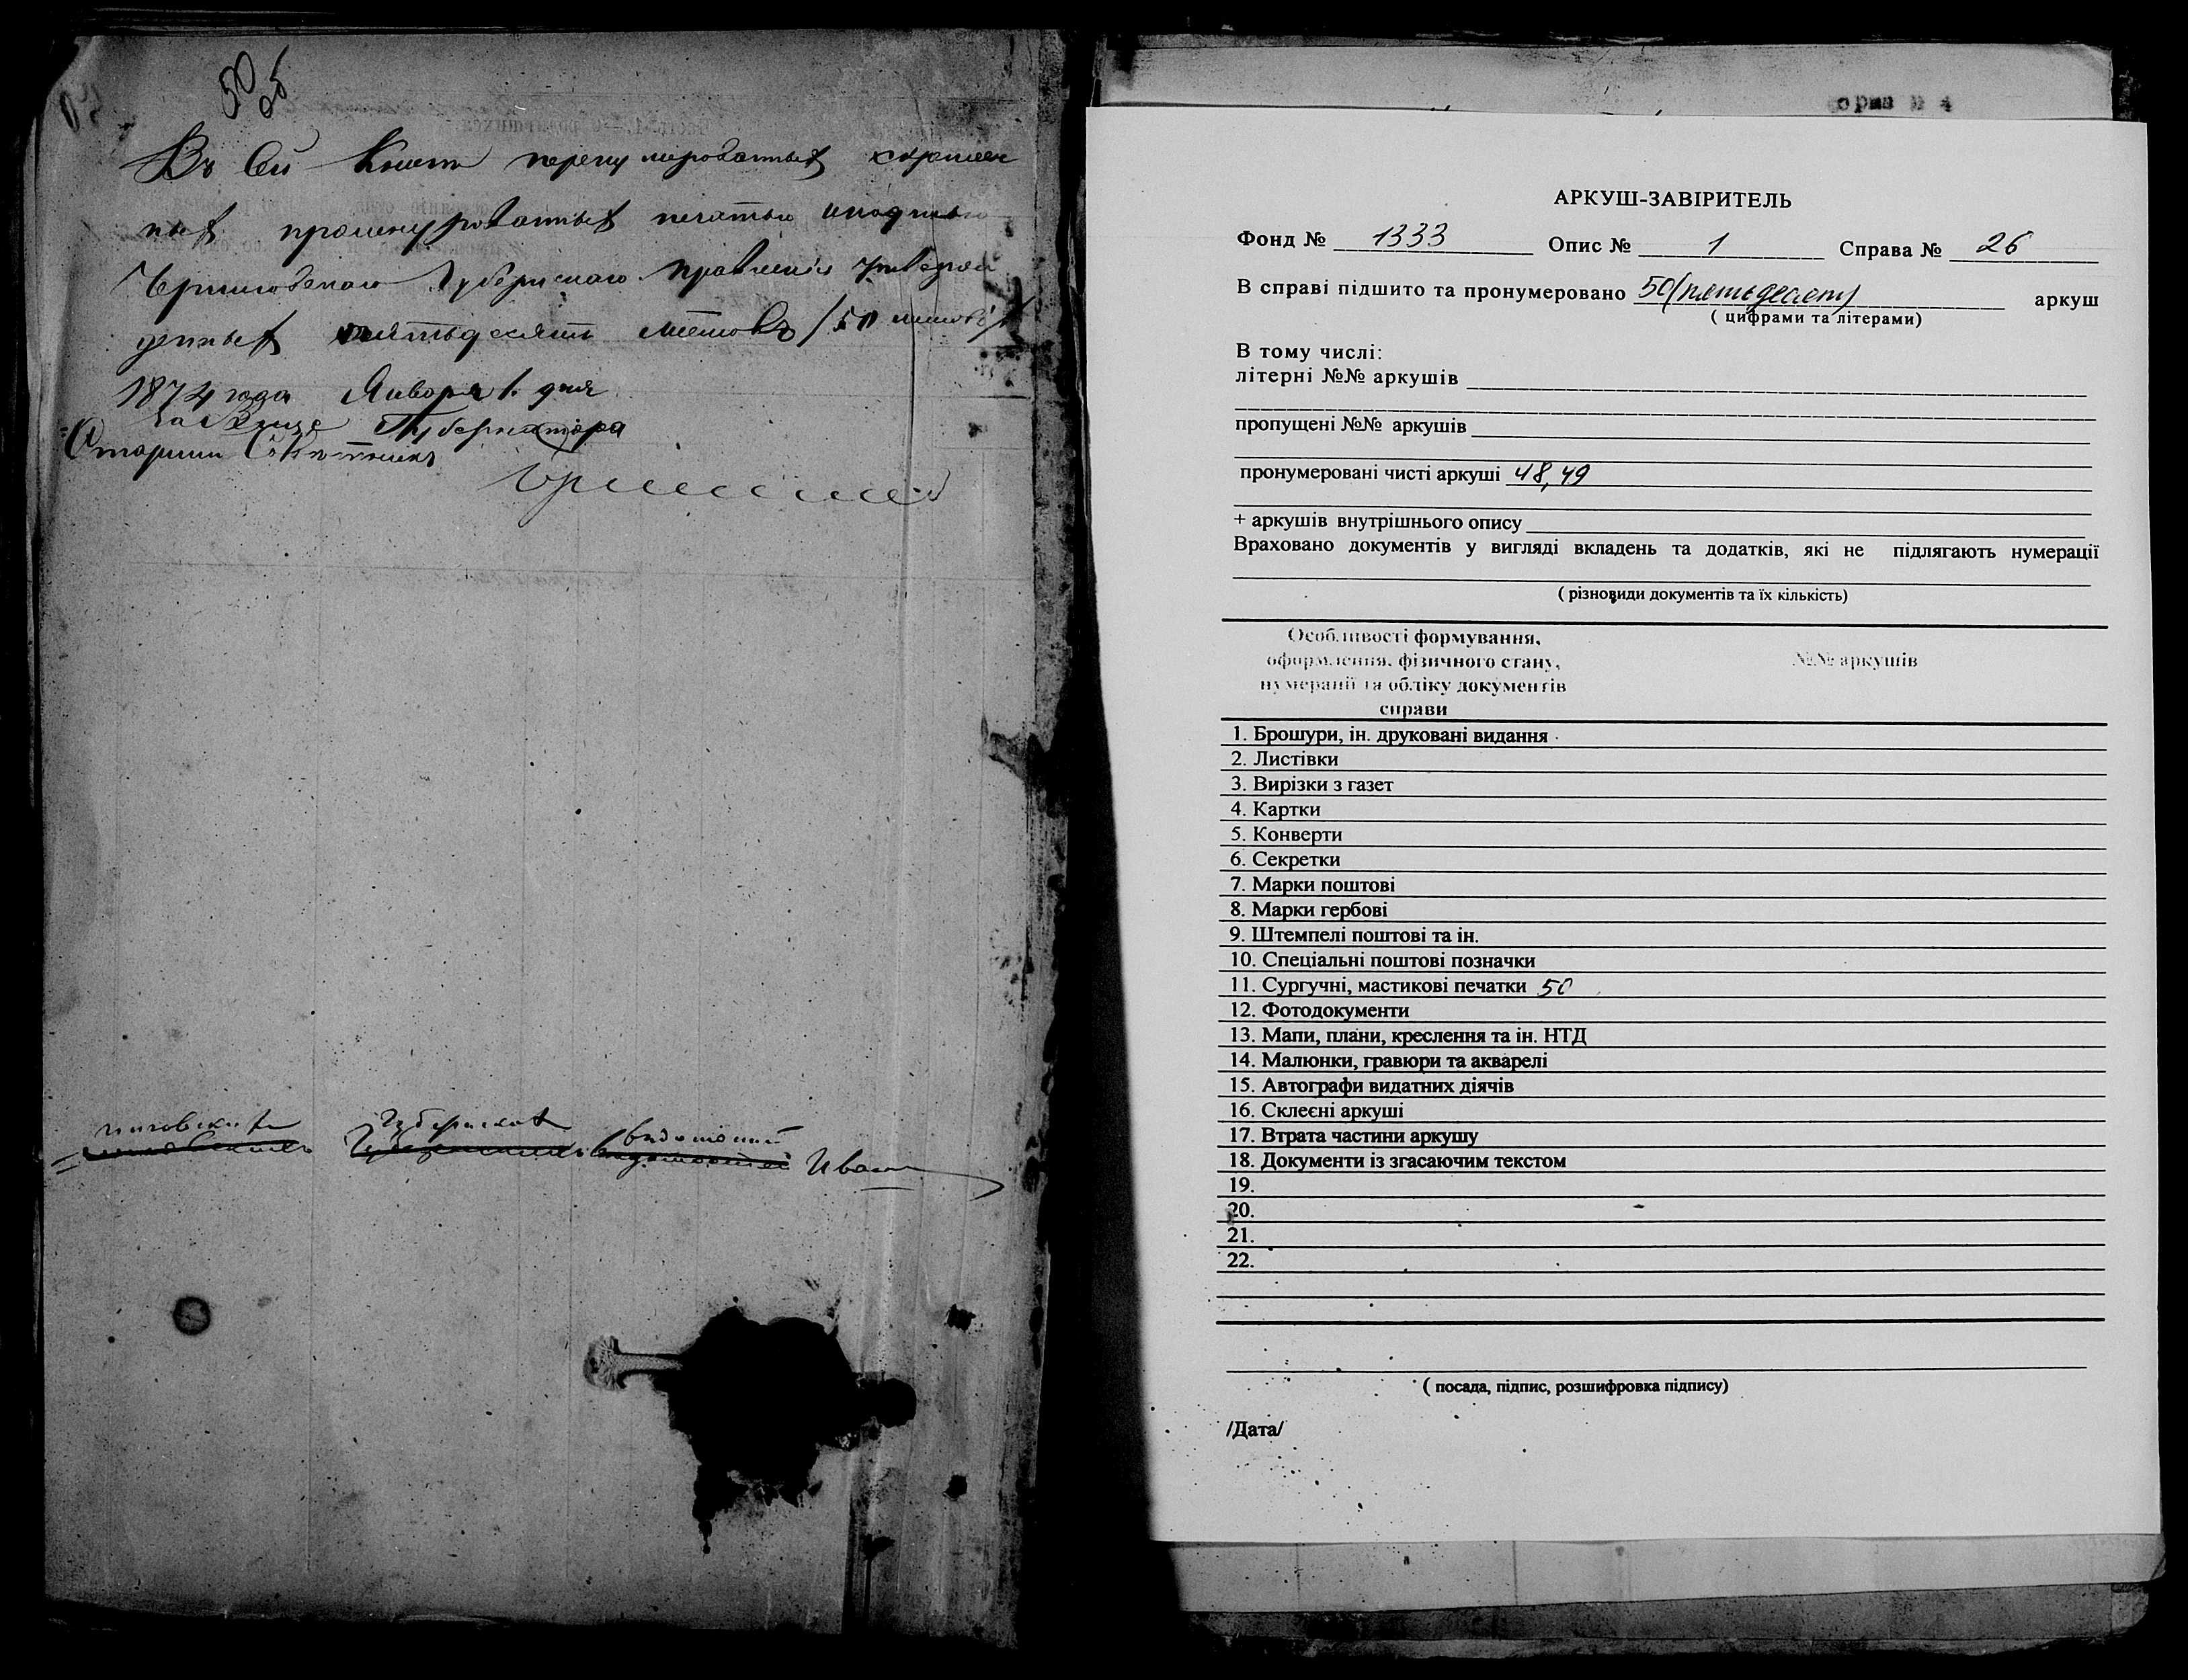 50 об
Въ сей Книге перенумерованныхъ скреплен
ныхъ прошнурованныхъ печатью
Черниговскаго Губернскаго Правления утверж
денныхъ пятьдесятъ листовъ /50 листовъ/
1874 года Января 1. дня
За Вице Губернатора
Старший Советникъ
Губернскихъ ведомостей Иван
орма № 4
АРКУШ-ЗАВІРИТЕЛЬ
Фонд № 1333 Опис № 1 Справа № 26
В справі підшито та пронумеровано 50 (пятьдесят) аркуш
( цифрами та літерами)
В тому числі:
літерні №№ аркушів
пропущені №№ аркушів
пронумеровані чисті аркуші 48, 49
+ аркушів внутрішнього опису
Враховано документів у вигляді вкладень та додатків, які не підлягають нумерації
( різновиди документів та їх кількість)
Особливості формування,
оформлення, фізичного стану,
нумерації та обліку документів
справи
№№ аркушів
1. Брошури, ін. друковані видання
2. Листівки
3. Вирізки з газет
4. Картки
5. Конверти
6. Секретки
7. Марки поштові
8. Марки гербові
9. Штемпелі поштові та ін.
10. Спеціальні поштові позначки
11. Сургучні, мастикові печатки 50
12. Фотодокументи
13. Мапи, плани, креслення та ін. НТД
14. Малюнки, гравюри та акварелі
15. Автографи видатних діячів
16. Склеєні аркуші
17. Втрата частини аркушу
18. Документи із згасаючим текстом
19.
20.
21.
22.
( посада, підпис, розшифровка підпису)
/Дата/